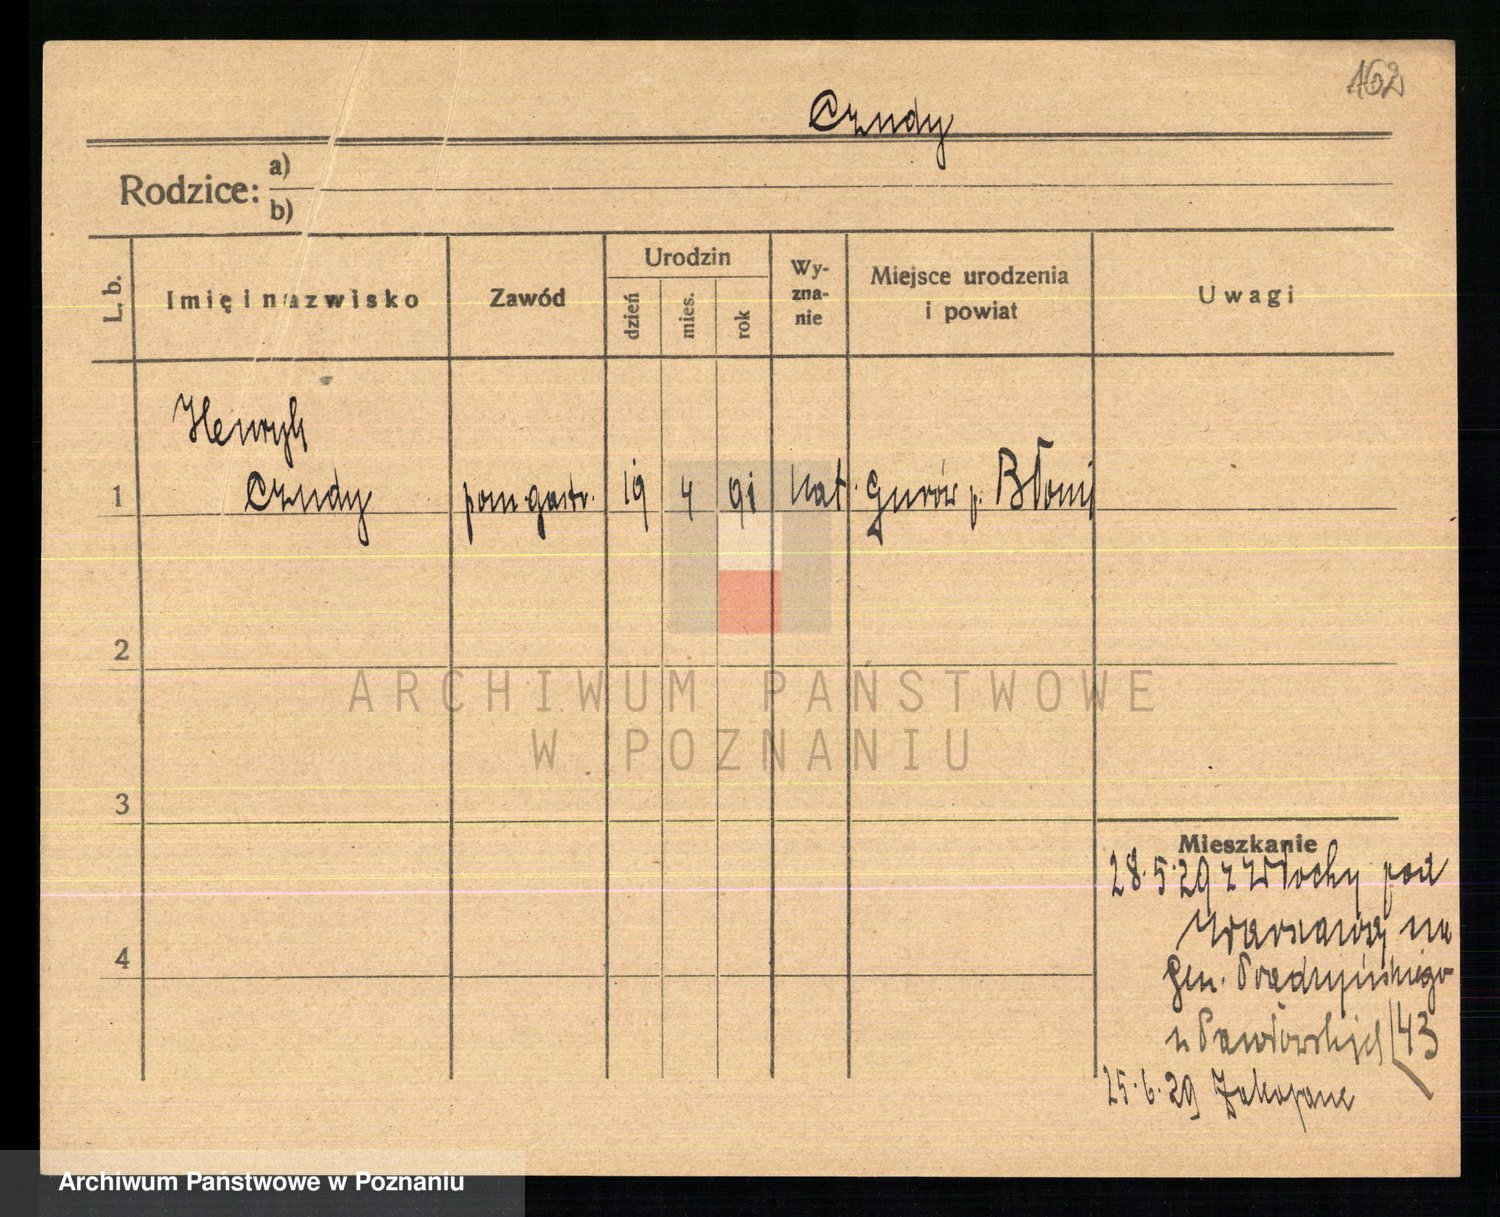 162
Czudy
Rodzice: a)
b)
L. b.
Imię i nazwisko
Zawód
Urodzin
dzień
mies.
rok
Wy-
zna-
nie
Miejsce urodzenia
i powiat
Uwagi
Henryk
1 Czudy pom. gastr. 19 4 91 kat. Gurów p. Błonij
2
ARCHIWUM PAŃSTWOWE
W POZNANIU
3
Mieszkanie
28.5.29 z Włochy pod
Warszawą na
Gen. Prądzyńskiego
u Pawłowskich 43
4
25.6.29 Zakopane
Archiwum Państwowe w Poznaniu